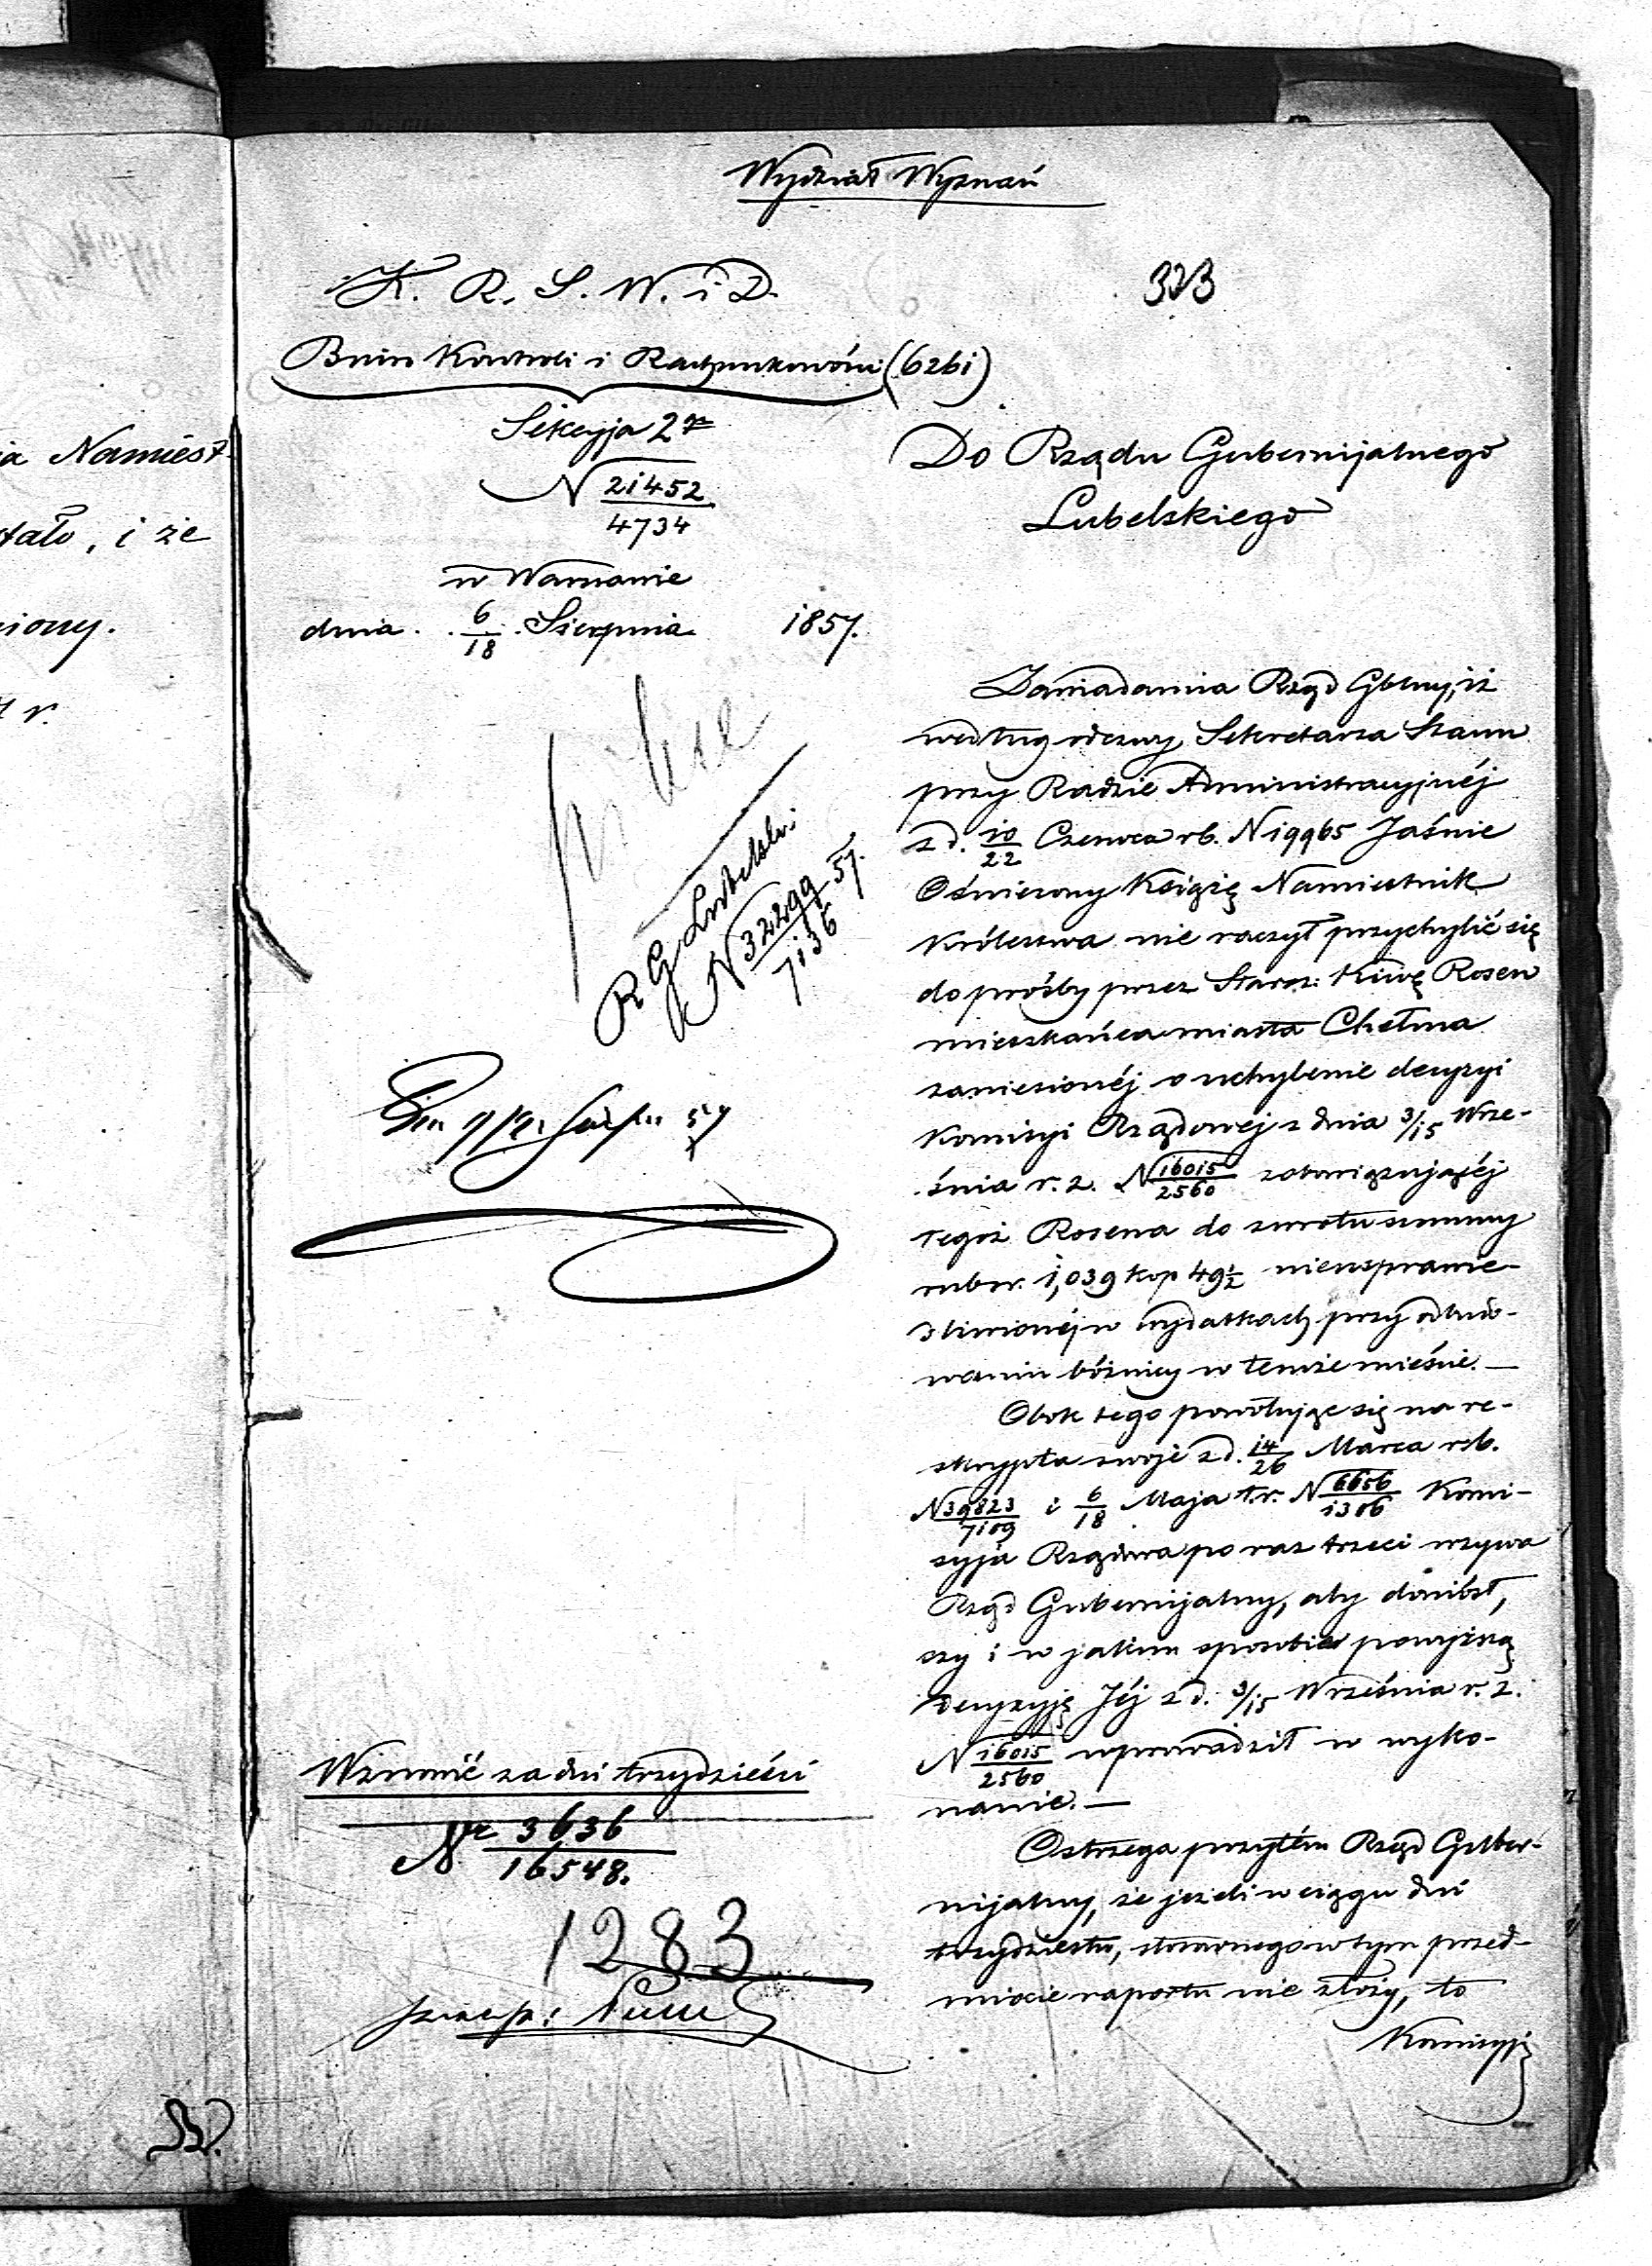 Wydział Wyznań
K. R. S. W. i D.
323
Biuro Kontroli i Rachunkowości (6261)
Sekcyja 2ga
N 21452/4734
w Warszawie
dnia 6/18 Sierpnia 1857.
Do Rządu Gubernijalnego
Lubelskiego
R G Lubelski
N 32299/7136 57.
Zawiadamia Rząd Gblny, iż
według odezwy Sekretarza Stanu
przy Radzie Administracyjnéj
z d. 10/22 Czerwca rb. N 19965 Jaśnie
Oświecony Książę Namiestnik
Królestwa nie raczył przychylić się
do prośby przez Staroz: Kiwę Rosen
mieszkańca miasta Chełma
zaniesionéj o uchylenie decyzyi
Komisyi Rządowéj z dnia 3/15 Wrze-
śnia r. z. N 16015/2560 zobowiązującéj
tegoż Rosena do zwrotu summy
rubsr. 1,039 kop 49½ nieusprawie-
dliwionéj w wydatkach przy odbudo-
waniu bóżnicy w temże mieście. —
Obok tego powołując się na re-
skrypta swoje z d. 14/26 Marca rb.
N 39823/7109 i 6/18 Maja t.r. N 6656/1306 Komi-
syja Rządowa po raz trzeci wzywa
Rząd Gubernijalny, aby doniósł,
czy i w jakim sposobie powyższą
decyzyję Jéj z d. 3/15 Września r. z.
N 16015/2560 wprowadził w wyko-
nanie. —
Ostrzega przytém Rząd Guber-
nijalny, że jeżeli w ciągu dni
trzydziestu, stanowczego w tym przed-
miocie raportu nie złoży, to
Komisyja
Wznowić za dni trzydzieści
Nr 3636/16548.
1283
ia Namiest
stało, i że
iony.
r.